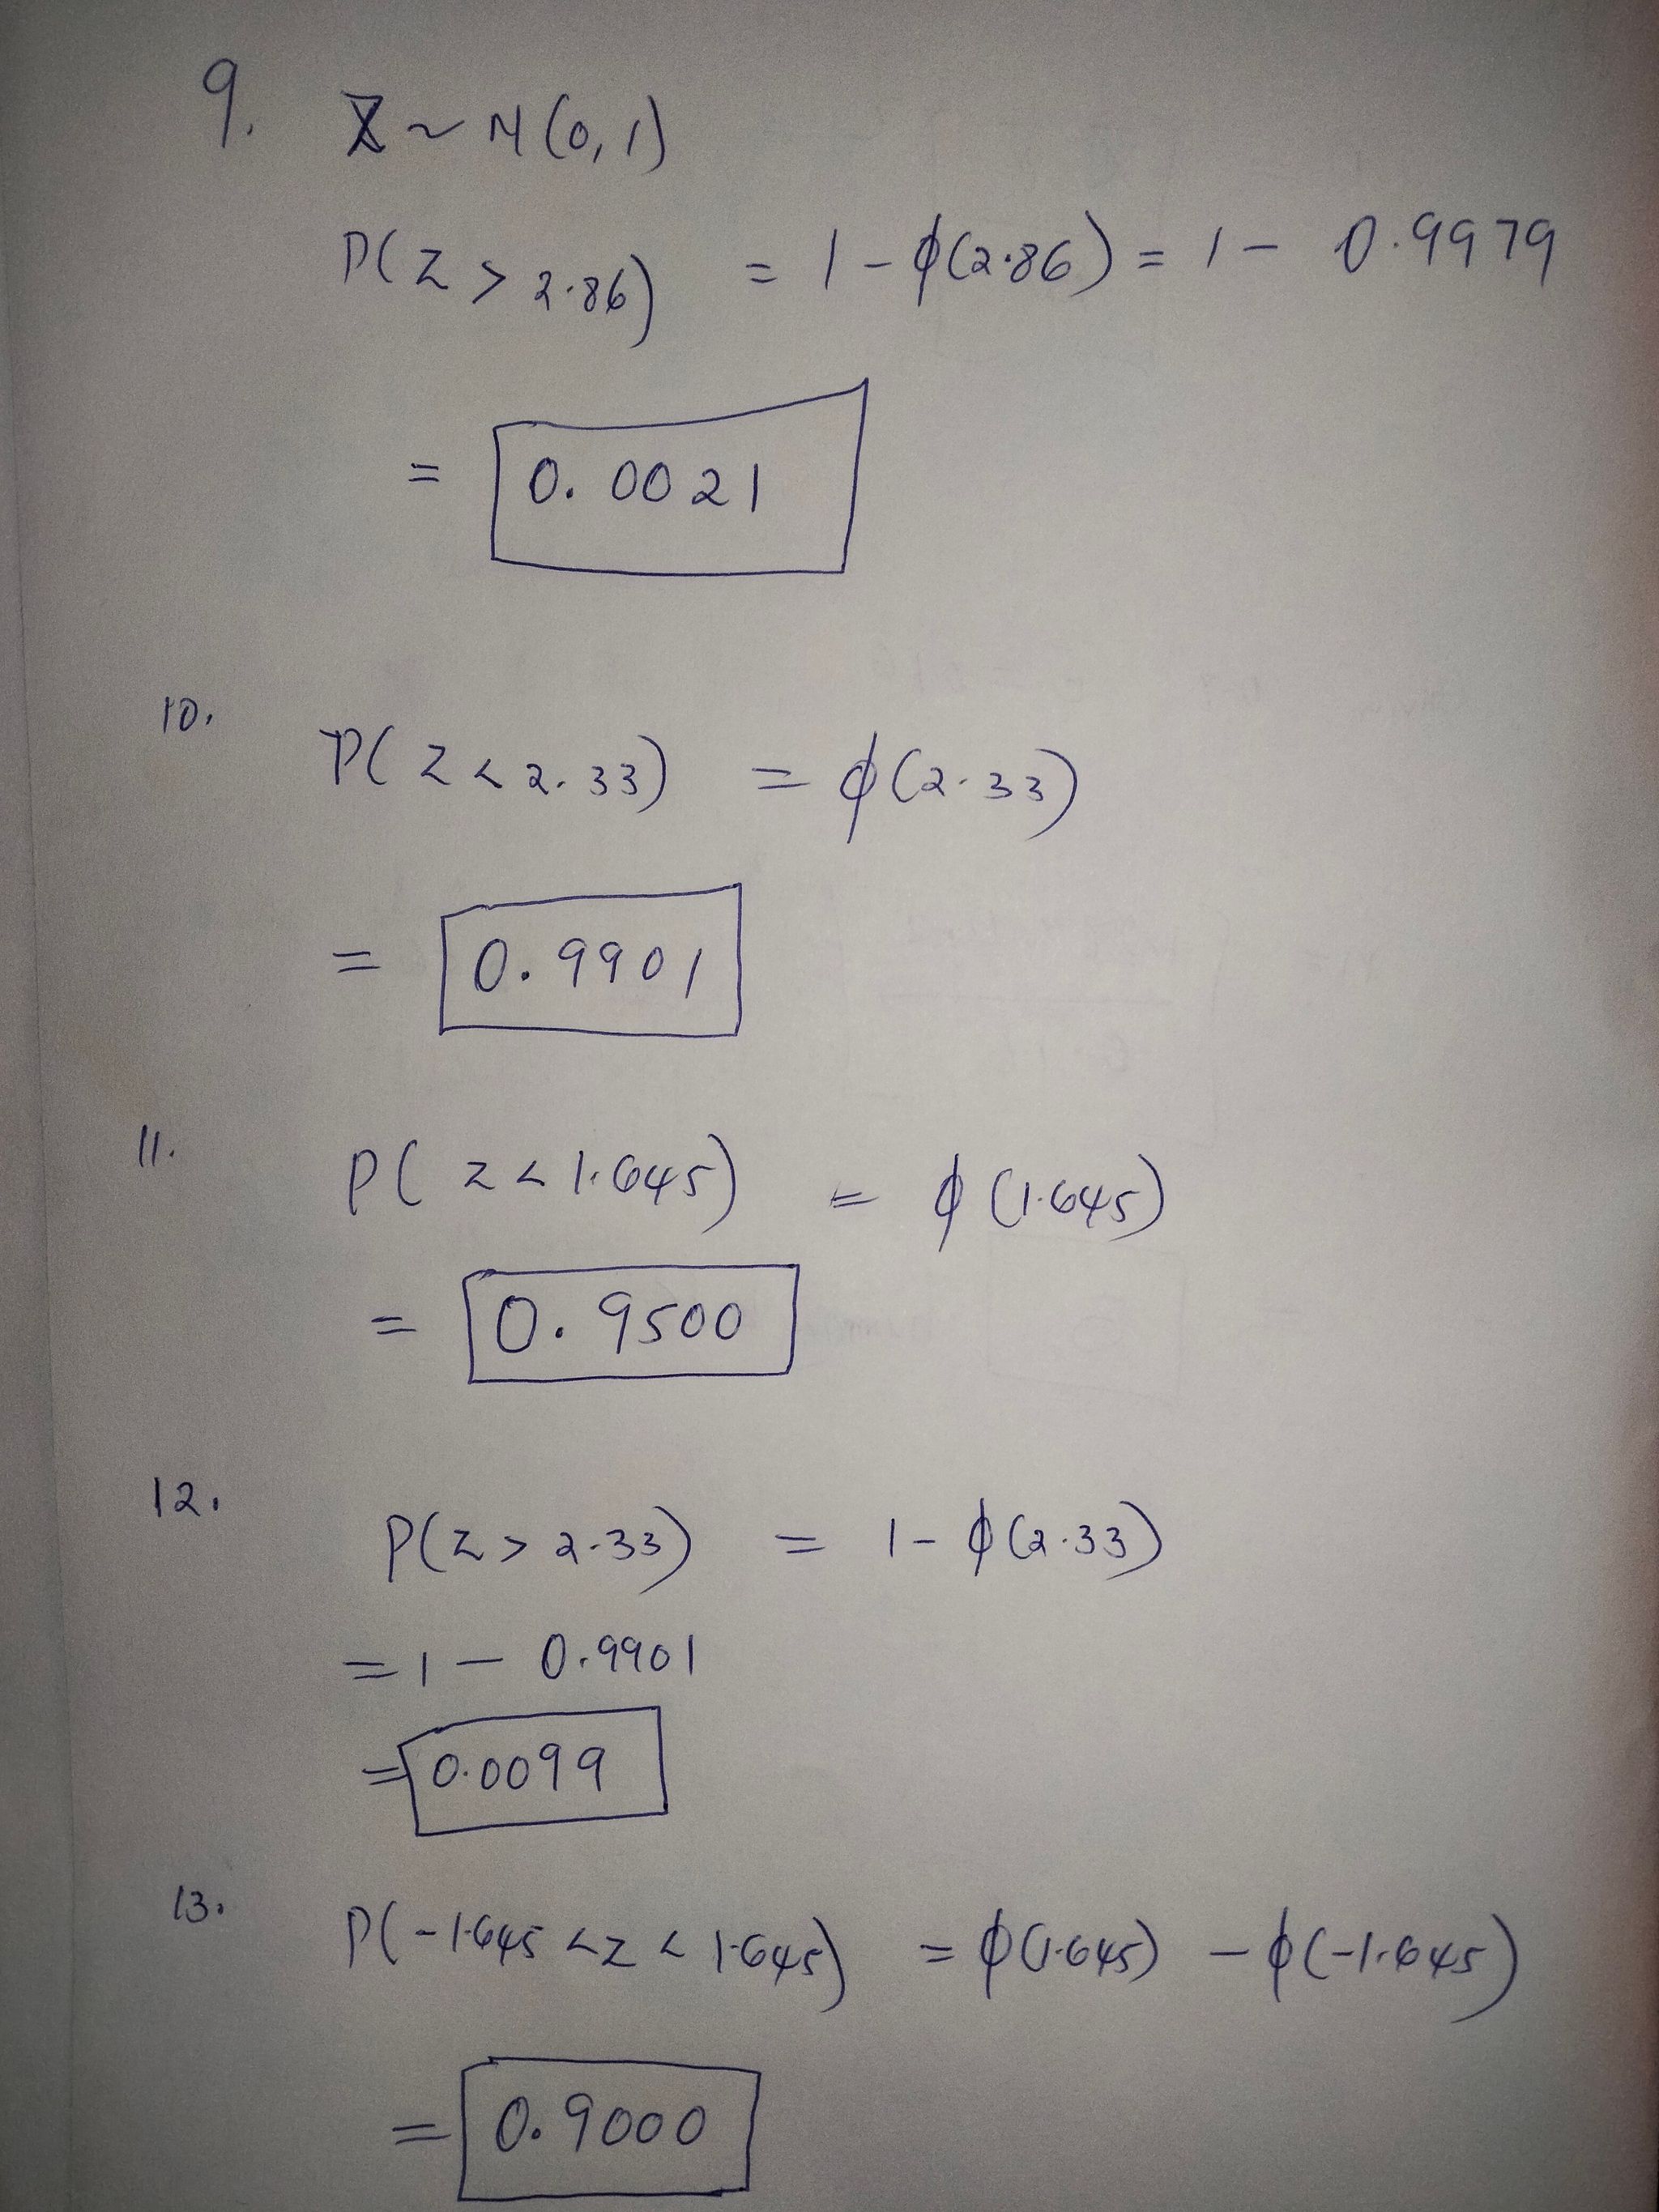 9. Z ~ N(0,1)
P(Z > 2.86) = 1 - ϕ(2.86) = 1 - 0.9979
= 0.0021
10. P(Z < 2.33) = ϕ(2.33)
= 0.9901
11. P(Z < 1.645) = ϕ(1.645)
= 0.9500
12. P(Z > 2.33) = 1 - ϕ(2.33)
= 1 - 0.9901
= 0.0099
13. P(-1.645 < Z < 1.645) = ϕ(1.645) - ϕ(-1.645)
= 0.9000